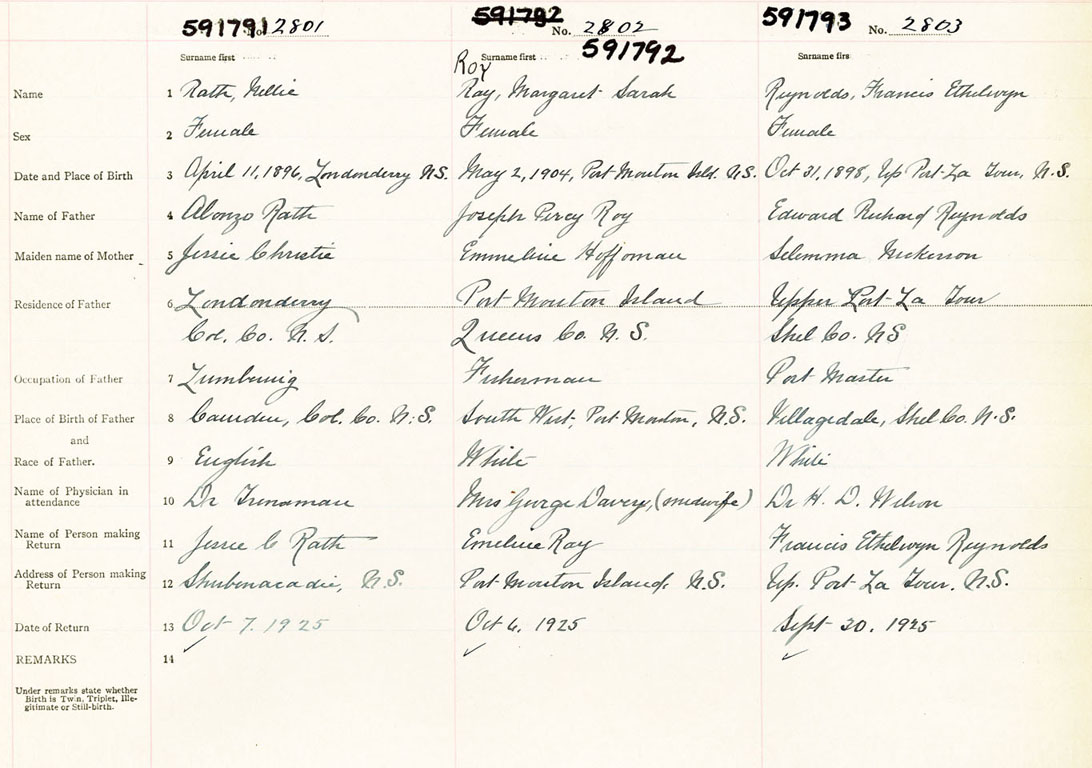 591791 No. 2801 591792 No. 2802 591793 No. 2803
591792
Surname first Roy Surname first Surname firs
Name 1 Rath, Nellie Ray, Margaret Sarah Reynolds, Francis Ethelwyn
Sex 2 Female Female Female
Date and Place of Birth 3 April 11, 1896, Londonderry N.S. May 2, 1904, Port Mouton Isld. N.S. Oct 31, 1898, Up Port La Tour, N.S.
Name of Father 4 Alonzo Rath Joseph Percy Roy Edward Richard Reynolds
Maiden name of Mother 5 Jessie Christie Emmeline Hoffoman Selemma Nickerson
Residence of Father 6 Londonderry Port Mouton Island Upper Port La Tour
Col. Co. N.S. Queens Co. N.S. Shel Co. NS
Occupation of Father 7 Lumbering Fisherman Post Master
Place of Birth of Father 8 Camden, Col. Co. N.S. South West, Port Mouton, N.S. Villagedale, Shel Co. N.S.
and
Race of Father. 9 English White White
Name of Physician in
attendance 10 Dr Mrs George Davery, (midwife) Dr H. D. Wilson
Name of Person making
Return 11 Jessie C Rath Emeline Ray Francis Ethelwyn Reynolds
Address of Person making
Return 12 Shubenacadie, N.S. Port Mouton Island, N.S. Up. Port La Tour, N.S.
Date of Return 13 Oct 7. 1925 Oct 6, 1925 Sept 30, 1925
REMARKS 14
Under remarks state whether
Birth is Twin, Triplet, Ille-
gitimate or Still-birth.